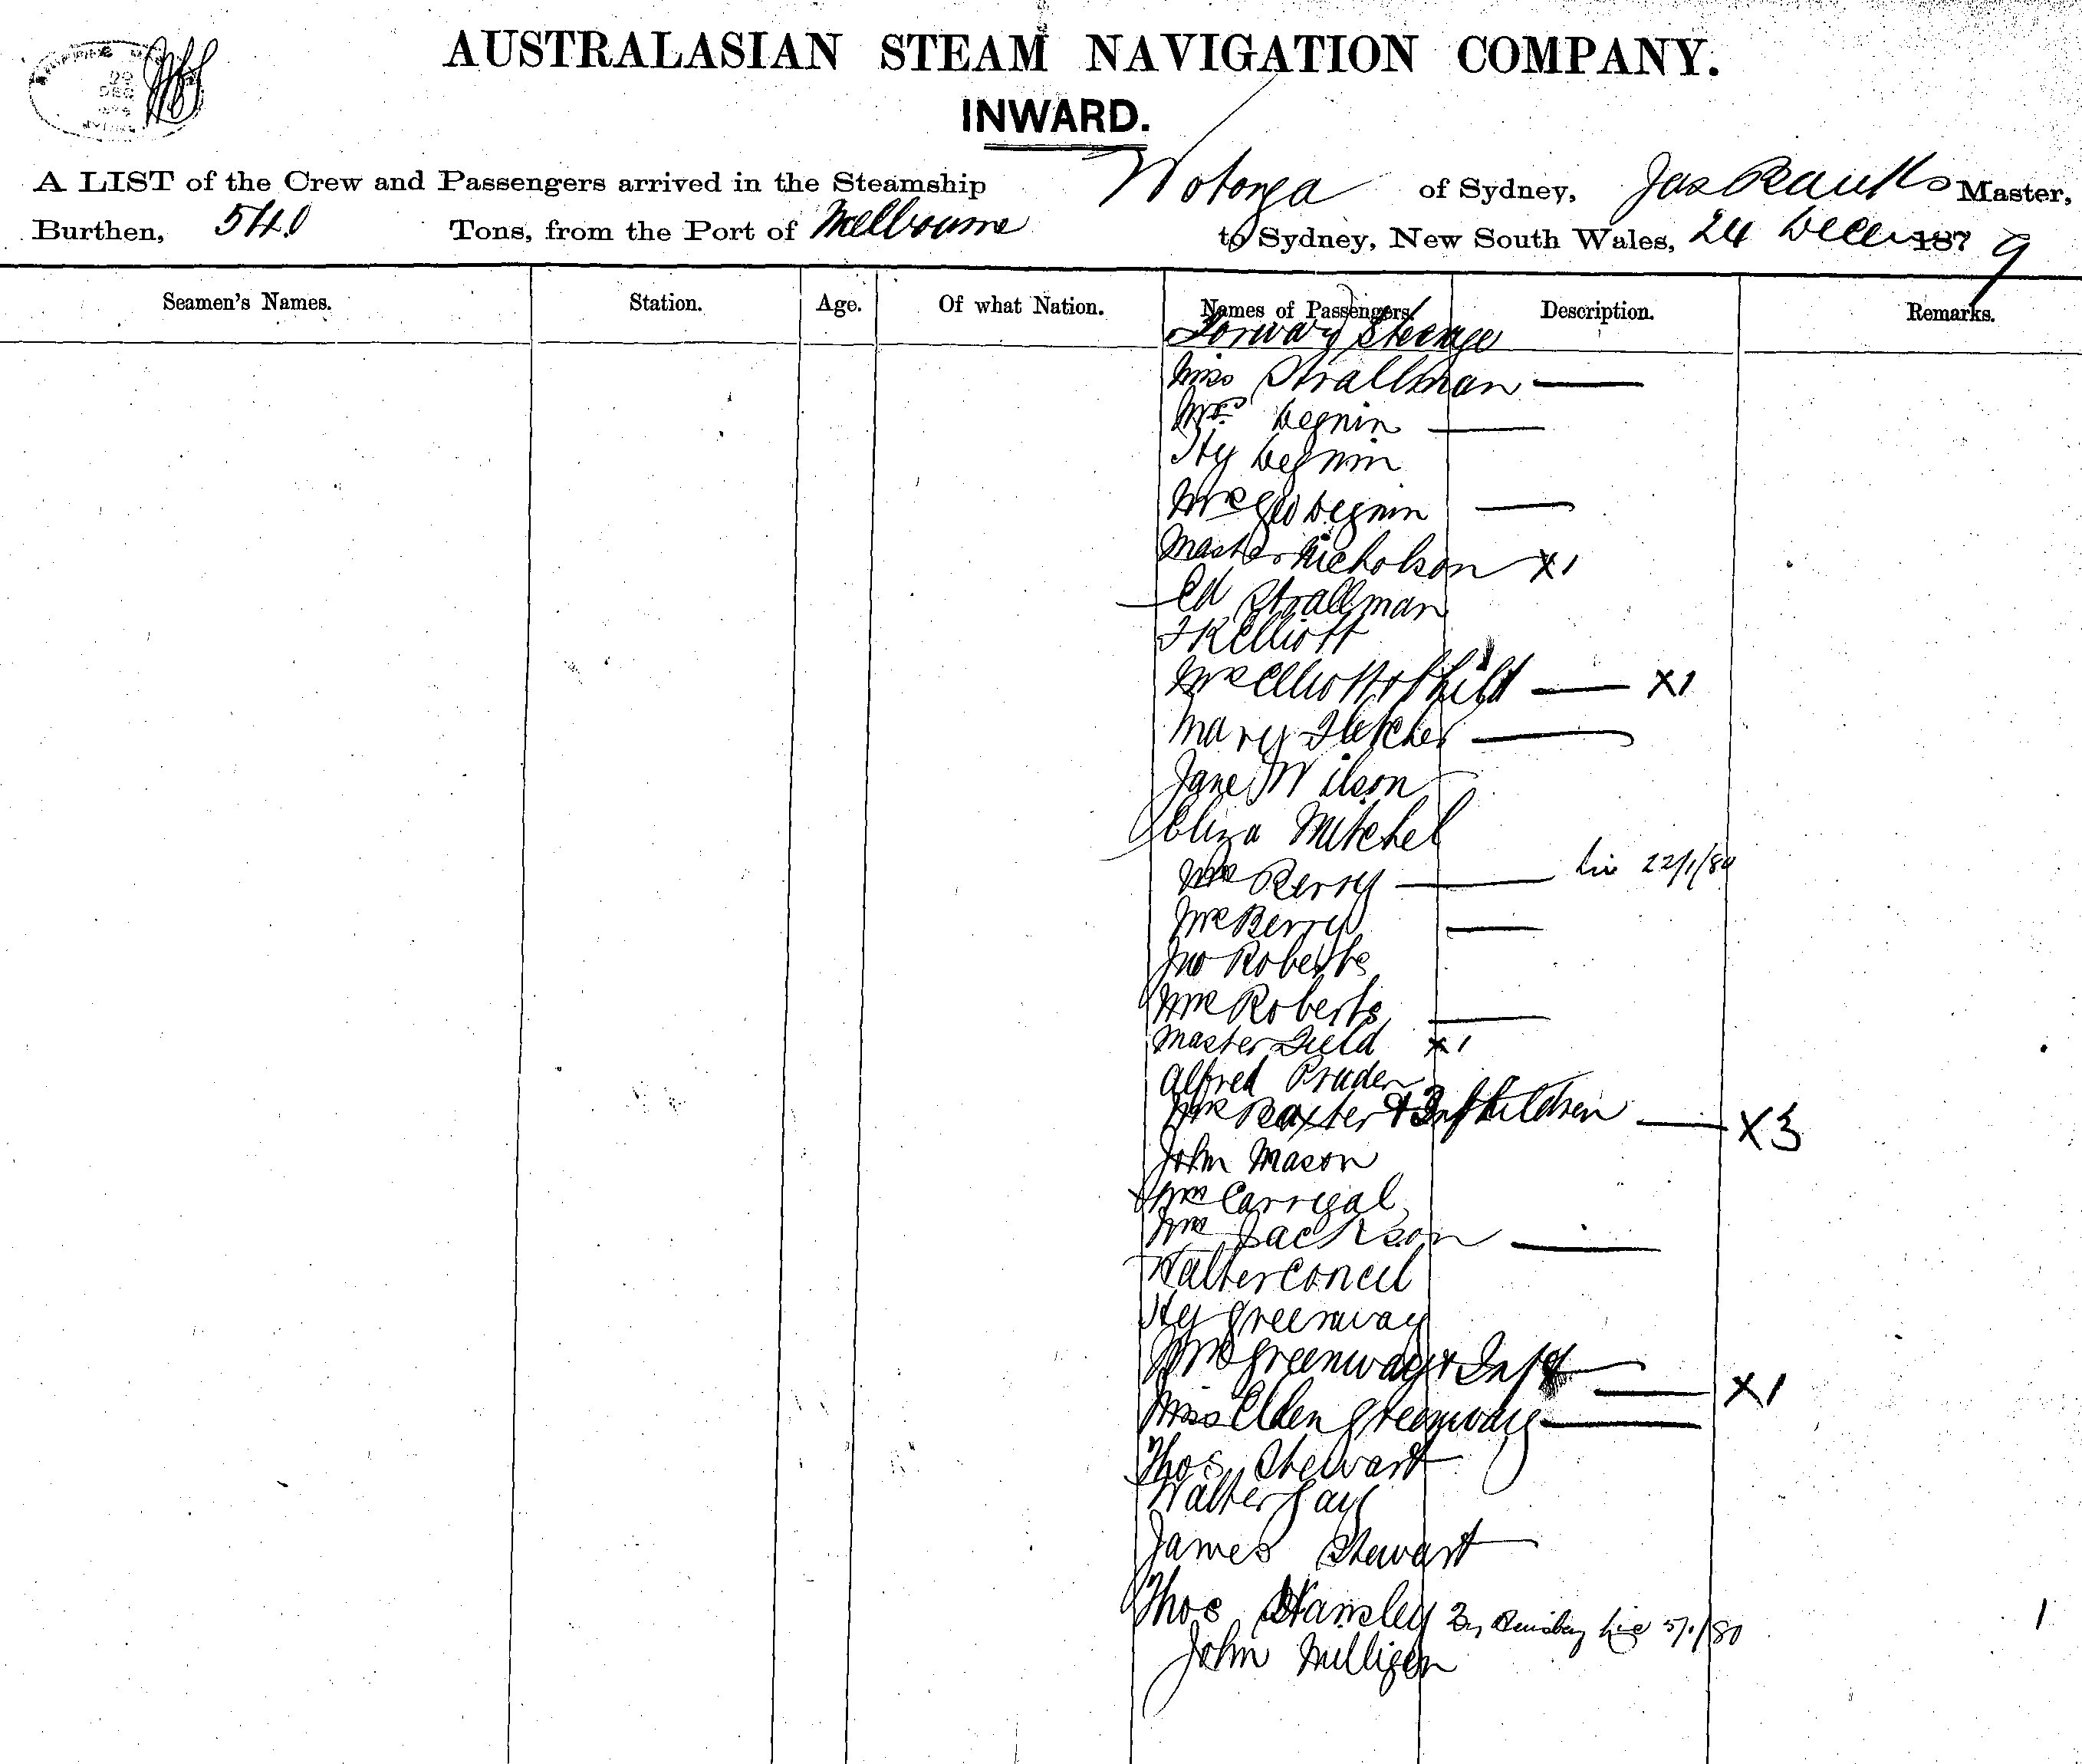 AUSTRALASIAN STEAM NAVIGATION COMPANY.
INWARD.
A LIST of the Crew and Passengers arrived in the Steamship Wotonga of Sydney, Jas Banks Master,
Burthen, 540 Tons, from the Port of Melbourne to Sydney, New South Wales, 24 Decem 187 9
Seamen's Names. Station. Age. Of what Nation. Names of Passengers. Description. Remarks.
Forward Steerage
Miss Strallman
Mrs Degnin
Hy Degnin
Mrs Geo Degnin
Master Nicholson X1
Ed Strallman
Elliott
Mrs Elliott & Child X1
Mary Fletcher
Jane Wilson
Eliza Mitchel
Berry 22/1/80
Mrs Berry
Jno Roberts
Mrs Roberts
Master Field X1
Alfred Pruden
Mrs Baxter & 3 children X3
John Mason
Carrigal
Jackson
Walter Concil
Hy Greenway
Mrs Greenway & Inft X1
Miss Ellen Greenway
Thos Stewart
Walter Gay
James Stewart
Thos Hansley 5/1/80
John Milligen
1